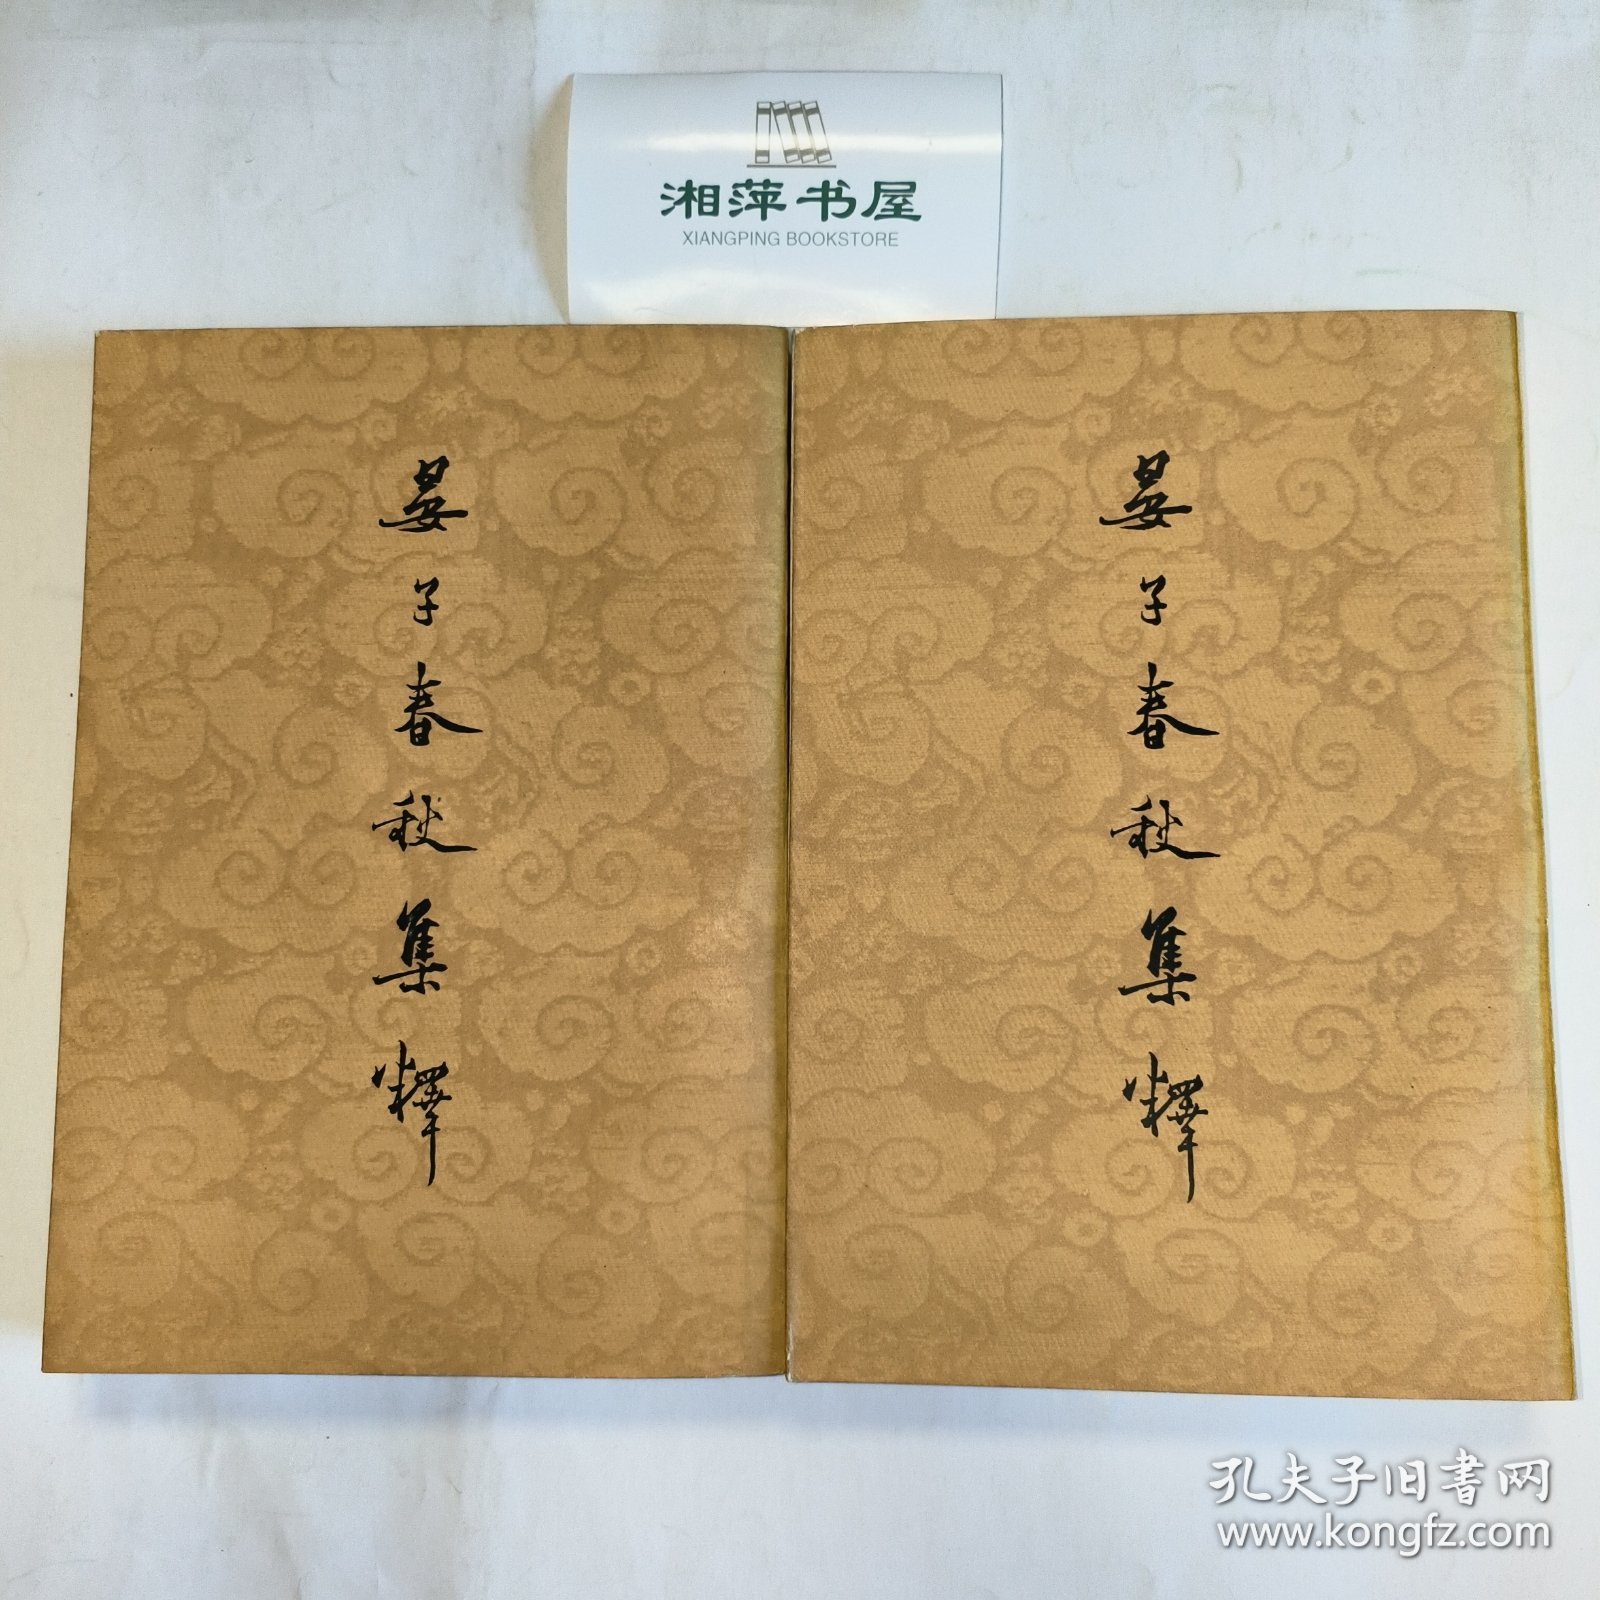 湘萍书屋
XIANGPING BOOKSTORE
晏子春秋集釋
晏子春秋集釋
孔夫子旧书网
www.kongfz.com